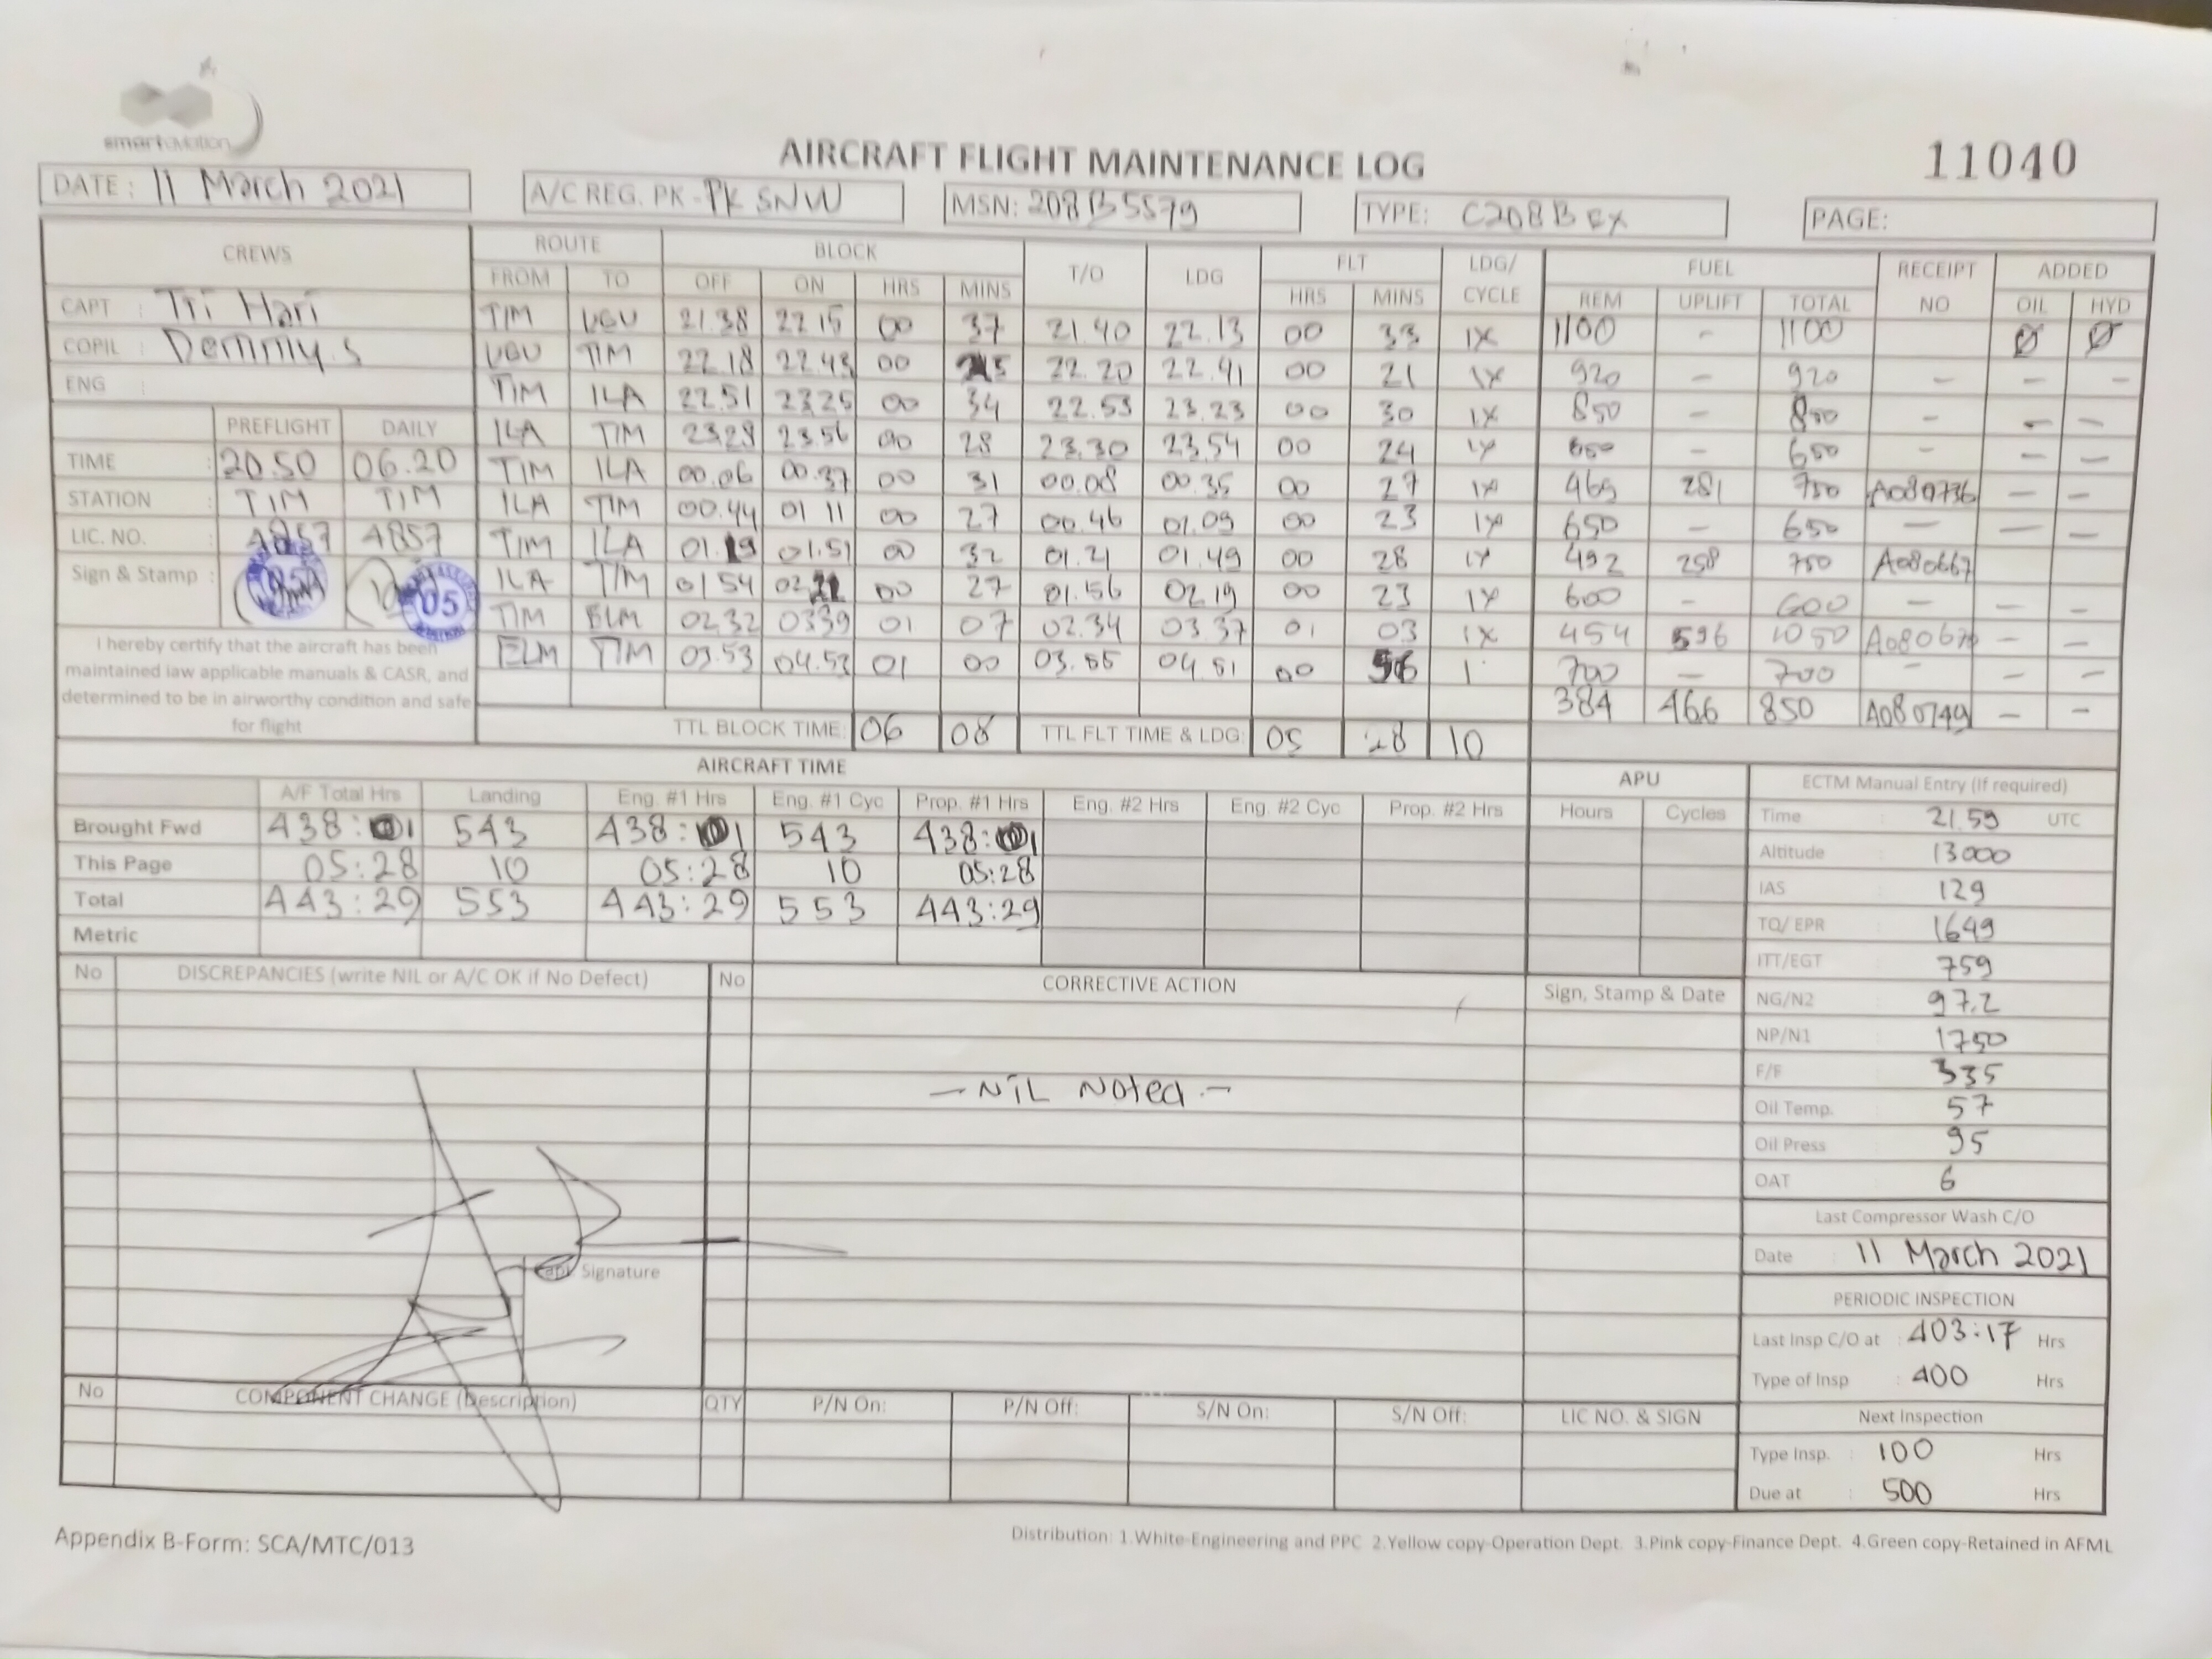 smartaviation
AIRCRAFT FLIGHT MAINTENANCE LOG
11040
DATE : 11 March 2021 A/C REG. PK - PK SNW MSN: 208B5579 TYPE: C208B EX PAGE:
CREWS ROUTE BLOCK T/O LDG FLT LDG/ CYCLE FUEL RECEIPT NO ADDED
FROM TO OFF ON HRS MINS HRS MINS REM UPLIFT TOTAL OIL HYD
CAPT : Tri Hari
COPIL : Demmy.S
ENG :
PREFLIGHT DAILY
TIME : 20.50 06.20
STATION : TIM TIM
LIC. NO. : 4857 4857
Sign & Stamp : 05
I hereby certify that the aircraft has been
maintained iaw applicable manuals & CASR, and
determined to be in airworthy condition and safe
for flight
TIM 21.38 22.15 00 37 21.40 22.13 00 33 1X 1100 - 1100 Ø Ø
TIM 22.18 22.43 00 22.20 22.41 00 21 1X 920 - 920 - - -
TIM ILA 22.51 23.25 00 34 22.53 23.23 00 30 1X 850 - 850 - - -
ILA TIM 23.28 23.56 00 28 23.30 23.54 00 24 1X 650 - 650 - -
TIM ILA 00.06 00.37 00 31 00.08 00.35 00 27 1X 469 281 750 A080736 - -
ILA TIM 00.44 01 11 00 27 00.46 01.09 00 23 1X 650 - 650 - - -
TIM ILA 01.19 01.51 00 32 01.21 01.49 00 28 1X 492 258 750 A080667
ILA TIM 01 54 02 21 00 27 01.56 02.19 00 23 1X 600 - 600 - - -
TIM ELM 02.32 03 39 01 07 02.34 03.37 01 03 1X 454 596 1050 - -
ELM TIM 03.53 04.53 01 00 03.55 04.51 00 56 1 700 - 700 - - -
384 466 850 A080749 - -
TTL BLOCK TIME: 06 08 TTL FLT TIME & LDG: 05 28 10
AIRCRAFT TIME
APU
A/F Total Hrs Landing Eng. #1 Hrs Eng. #1 Cyc Prop. #1 Hrs Eng. #2 Hrs Eng. #2 Cyc Prop. #2 Hrs Hours Cycles
Brought Fwd 438:01 543 438:01 543 438:01
This Page 05:28 10 05:28 10 05:28
Total 443:29 553 443:29 553 443:29
Metric
ECTM Manual Entry (If required)
Time : 21.59 UTC
Altitude : 13000
IAS : 129
TQ/ EPR : 1649
ITT/EGT : 759
NG/N2 : 97.2
NP/N1 : 1750
F/F : 335
Oil Temp. : 57
Oil Press : 95
OAT : 6
Last Compressor Wash C/O
Date : 11 March 2021
PERIODIC INSPECTION
Last Insp C/O at : 403:17 Hrs
Type of Insp : 400 Hrs
Next Inspection
Type Insp. : 100 Hrs
Due at : 500 Hrs
No DISCREPANCIES (write NIL or A/C OK if No Defect) No CORRECTIVE ACTION Sign, Stamp & Date
- NIL Noted -
Capt. Signature
No COMPONENT CHANGE (Description) QTY P/N On: P/N Off: S/N On: S/N Off: LIC NO. & SIGN
Appendix B-Form: SCA/MTC/013
Distribution: 1.White-Engineering and PPC 2.Yellow copy-Operation Dept. 3.Pink copy-Finance Dept. 4.Green copy-Retained in AFML